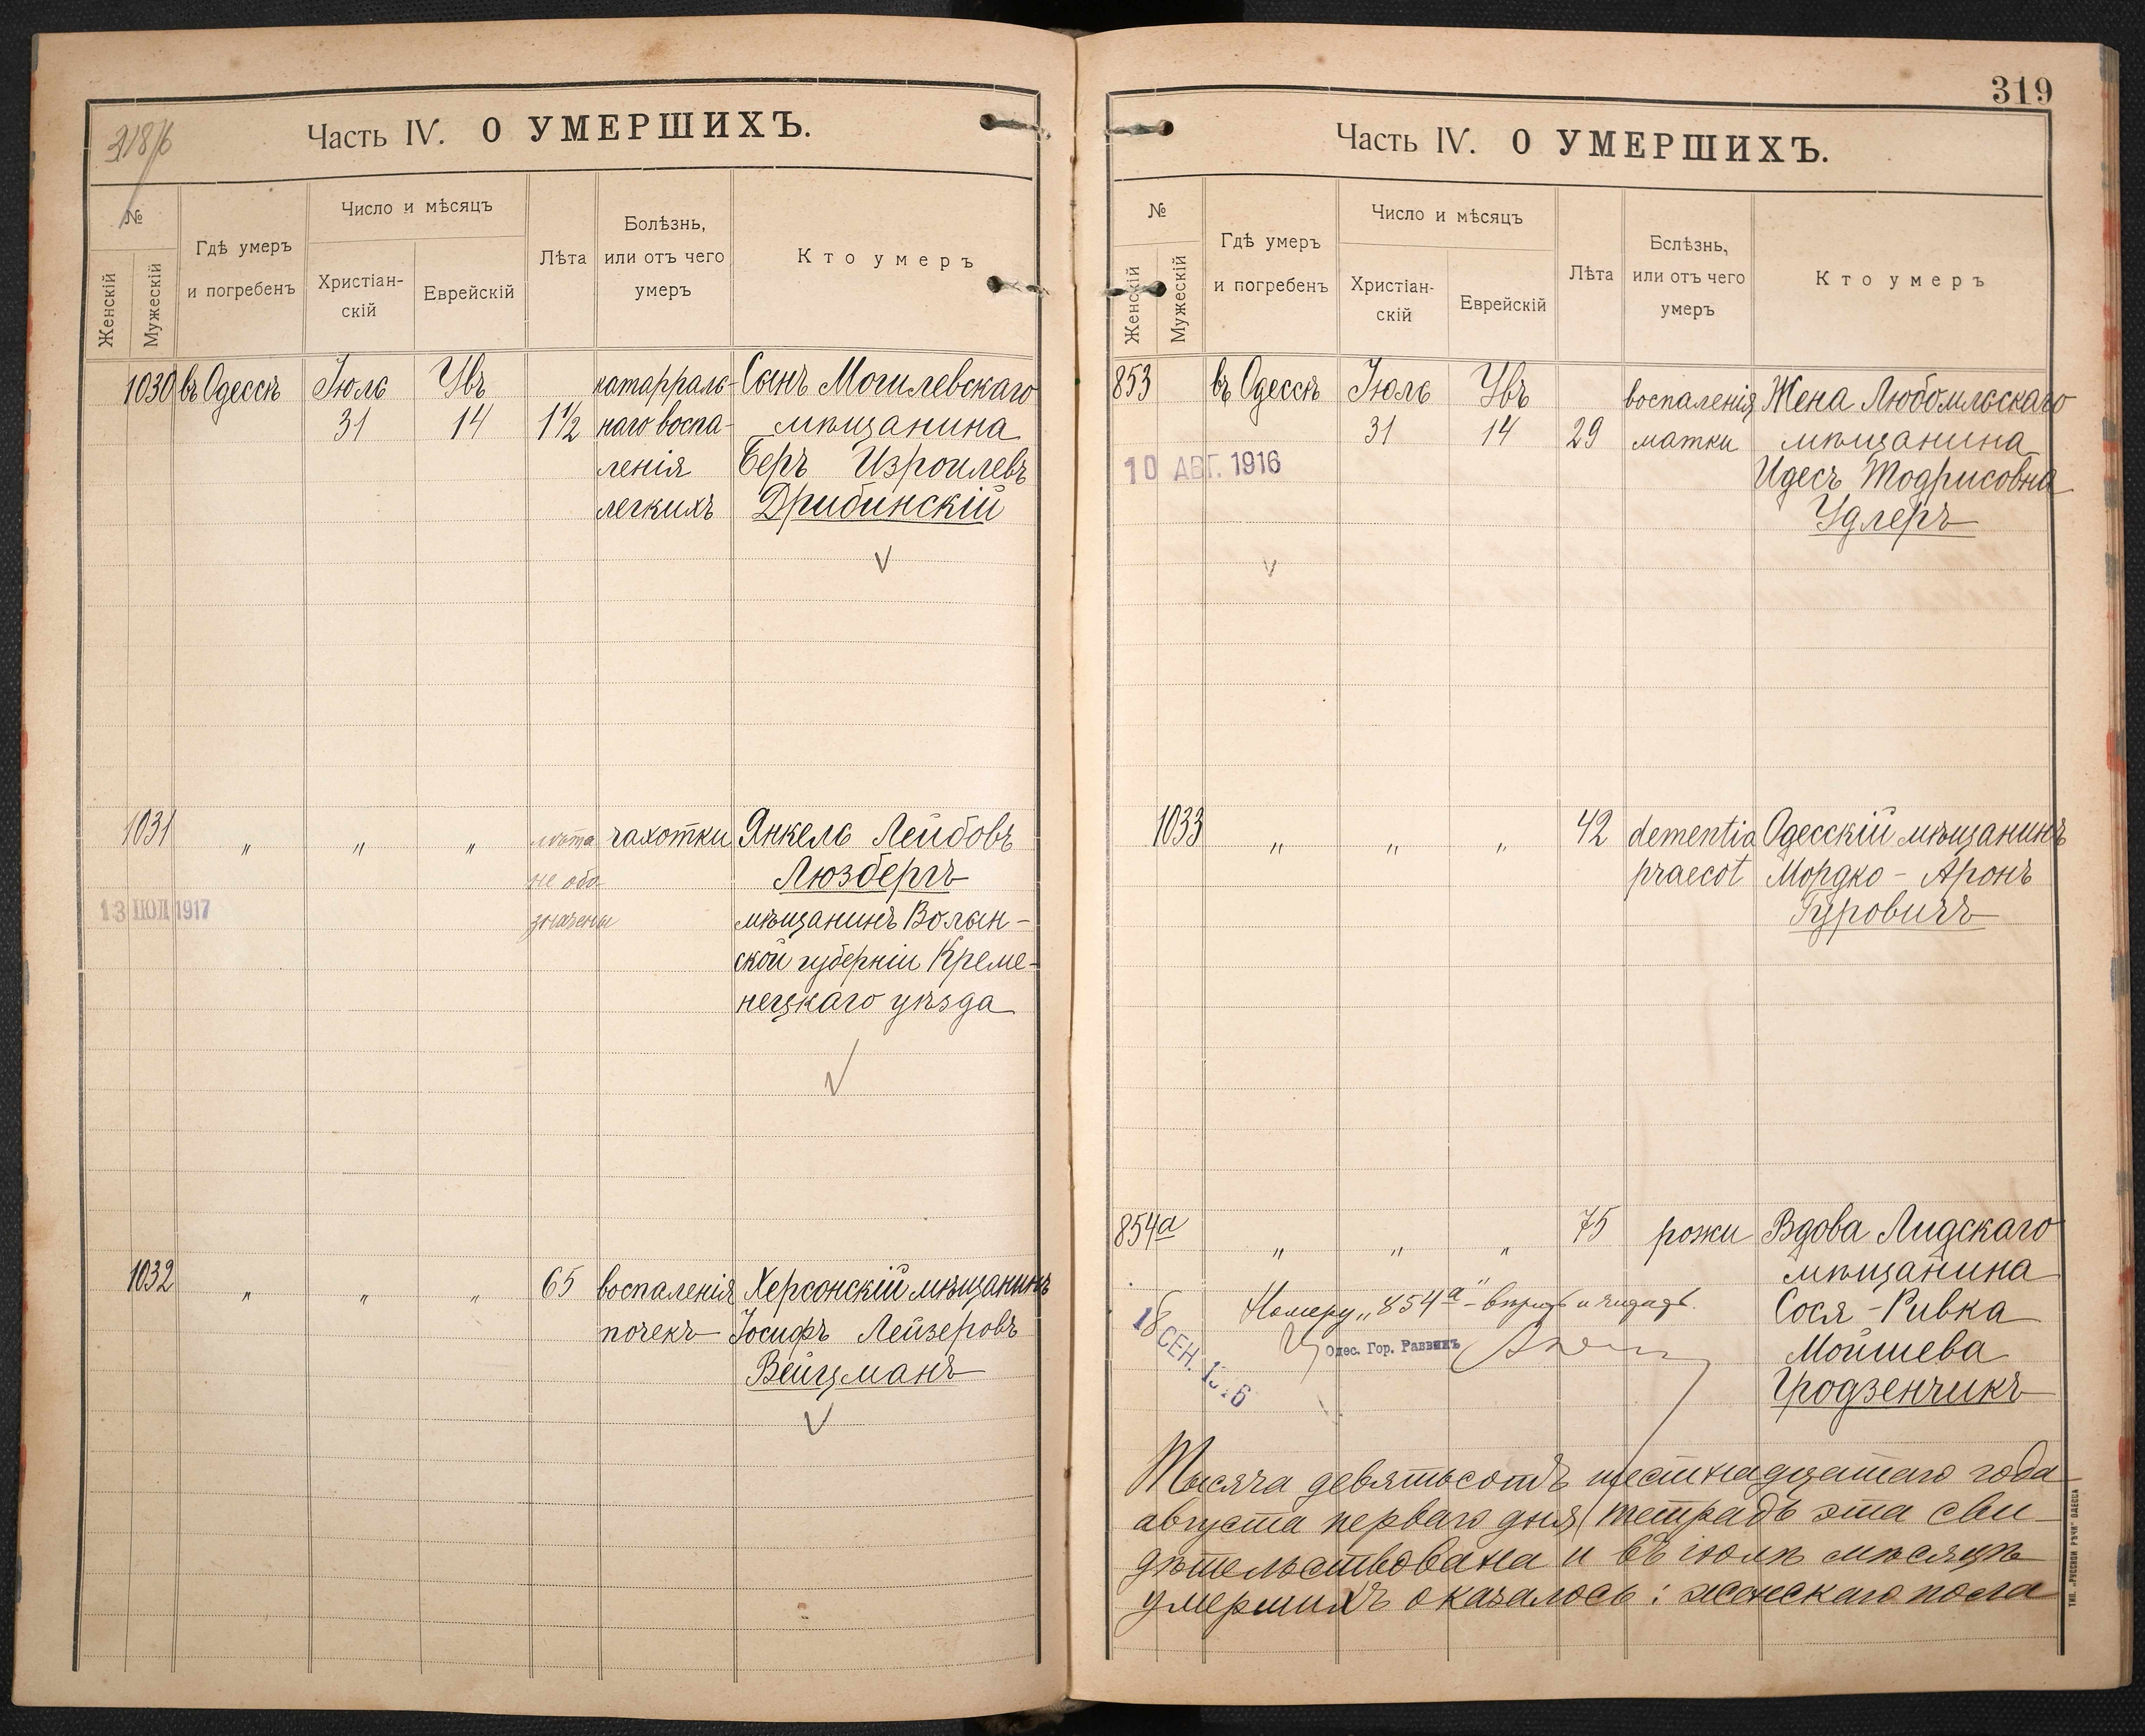 318/б
Часть IV. О УМЕРШИХЪ.
№
Женскій
Мужескій
Гдѣ умеръ
и погребенъ
Число и мѣсяцъ
Христіан-
скій
Еврейскій
Лѣта
Болѣзнь,
или отъ чего
умеръ
Кто умеръ
1030 въ Одессѣ Іюль Увъ катарраль- Сынъ Могилевскаго
31 14 1½ наго воспа- мѣщанина
ленія Беръ Изроилевъ
легкихъ Дрибинскій
1031 " " " лѣта чахотки Янкель Лейбовъ
не обо Люзбергъ
13 ІЮЛ 1917 значены мѣщанинъ Волын-
ской губерніи Креме-
нецкаго уѣзда
1032 " " " 65 воспаленія Херсонскій мѣщанинъ
почекъ Іосифъ Лейзеровъ
Вейцманъ
319
Часть IV. О УМЕРШИХЪ.
№
Женскій
Мужескій
Гдѣ умеръ
и погребенъ
Число и мѣсяцъ
Христіан-
скій
Еврейскій
Лѣта
Бслѣзнь,
или отъ чего
умеръ
Кто умеръ
853 въ Одессѣ Іюль Увъ воспаленія Жена Любомльскаго
31 14 29 матки мѣщанина
10 АВГ. 1916 Идесъ Тодрисовна
Удлеръ
1033 " " " 42 dementia Одесскій мѣщанинъ
praecot Мордко - Аронъ
Гуровичъ
854а " " " 75 рожи Вдова Лидскаго
мѣщанина
Номеру „854а"- Сося - Ривка
18 СЕН. Одес. Гор. Раввинъ Мойшева
Гродзенчикъ
Тысяча девятьсотъ шестнадцатаго года
августа перваго дня тетрадь эта сви-
дѣтельствована и въ іюлѣ мѣсяцѣ
умершихъ оказалось: женскаго пола
ТИП. „РУССКОЙ РѢЧИ" ОДЕССА